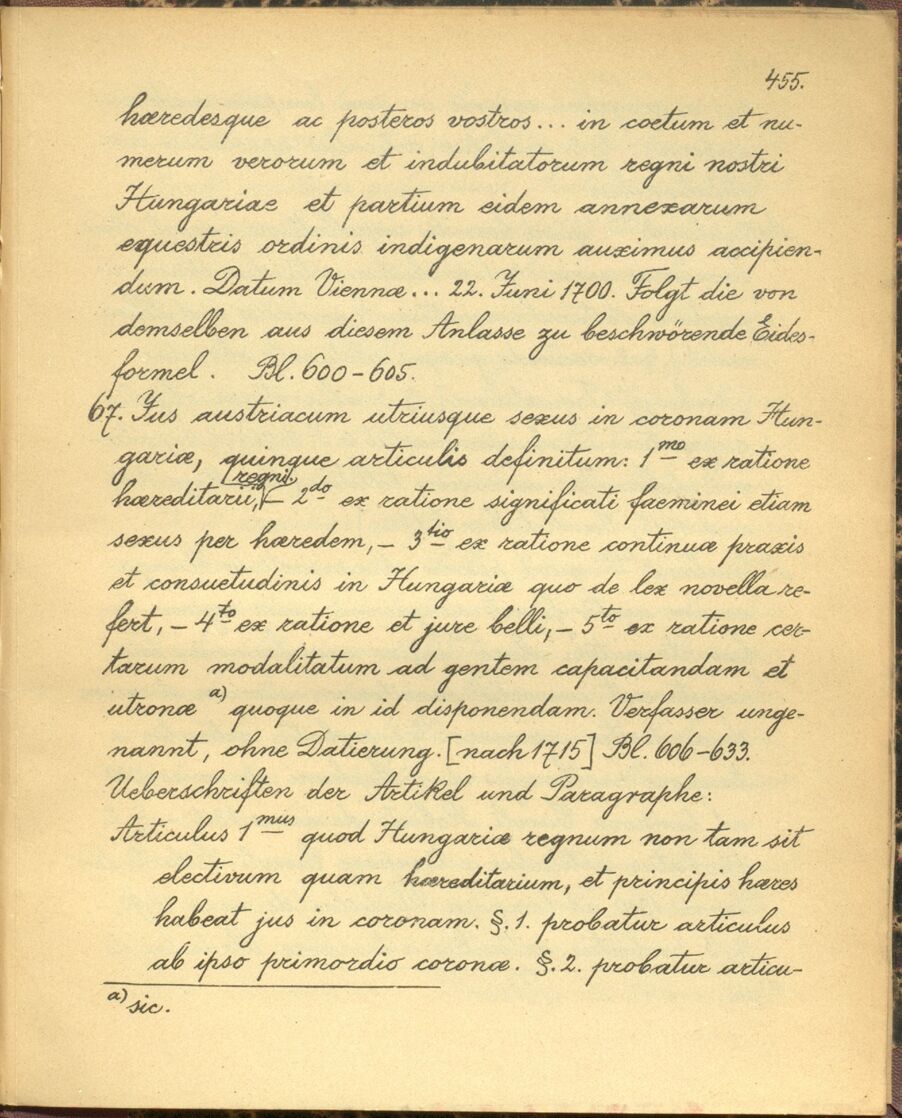 455.
hæredesque ac posteros vostros... in coetum et nu-
merum verorum et indubitatorum regni nostri
Hungariae et partium eidem annexarum
equestris ordinis indigenarum auximus accipien-
dum. Datum Viennæ... 22. Juni 1700. Folgt die von
demselben aus diesem Anlasse zu beschwörende Eides-
formel. Bl. 600-605.
67. Jus austriacum utriusque sexus in coronam Hun-
gariæ, quinque articulis definitum: 1mo ex ratione
regni
hæreditarii, - 2do ex ratione significati faeminei etiam
sexus per hæredem, - 3tio ex ratione continuæ praxis
et consuetudinis in Hungariæ quo de lex novella re-
fert, - 4to ex ratione et jure belli, - 5to ex ratione cer-
tarum modalitatum ad gentem capacitandam et
utronæ a) quoque in id disponendam. Verfasser unge-
nannt, ohne Datierung. [nach 1715] Bl. 606-633.
Ueberschriften der Artikel und Paragraphe:
Articulus 1mus quod Hungariæ regnum non tam sit
electivum quam hæreditarium, et principis hæres
habeat jus in coronam. §. 1. probatur articulus
ab ipso primordio coronæ. §. 2. probatur articu-
a) sic.